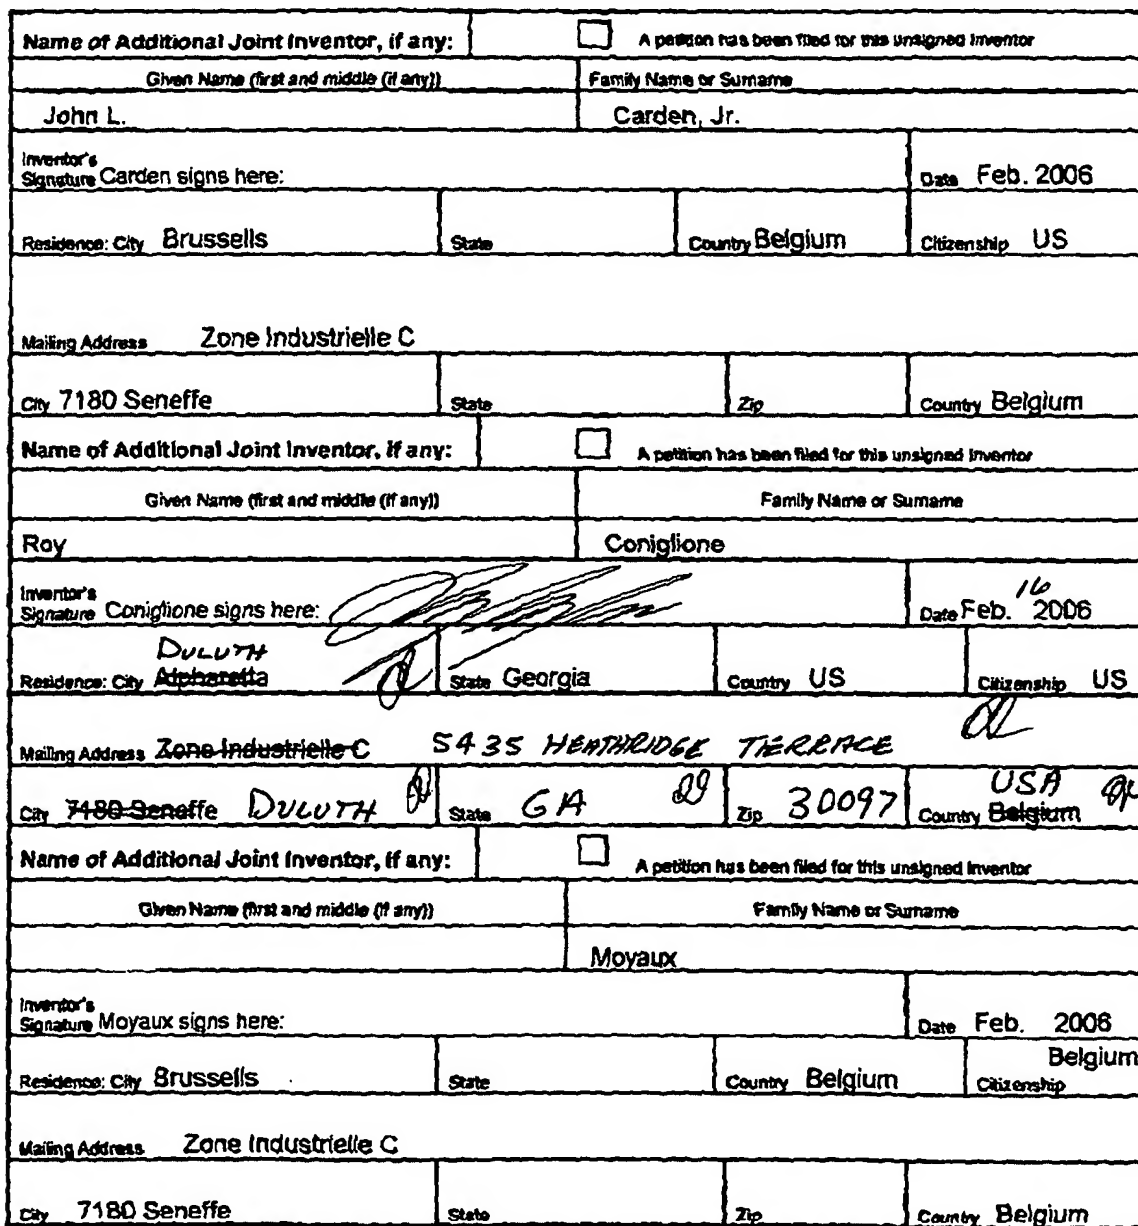 Name of Additional Joint Inventor, if any: A petition has been filed for this unsigned inventor
Given Name (first and middle (if any)) Family Name or Surname
John L. Carden, Jr.
Inventor's
Signature Carden signs here: Date Feb. 2006
Residence: City Brussells State Country Belgium Citizenship US
Mailing Address Zone Industrielle C
City 7180 Seneffe State Zip Country Belgium
Name of Additional Joint Inventor, if any: A petition has been filed for this unsigned inventor
Given Name (first and middle (if any)) Family Name or Surname
Roy Coniglione
Inventor's
Signature Coniglione signs here: Date Feb. 16 2006
DULUTH
Residence: City Alpharetta State Georgia Country US Citizenship US
Mailing Address Zone Industrielle C 5435 HEATHRIDGE TERRACE
USA
City 7180 Seneffe DULUTH State GA Zip 30097 Country Belgium
Name of Additional Joint Inventor, if any: A petition has been filed for this unsigned inventor
Given Name (first and middle (if any)) Family Name or Surname
Moyaux
Inventor's
Signature Moyaux signs here: Date Feb. 2006
Belgium
Residence: City Brussells State Country Belgium Citizenship
Mailing Address Zone Industrielle C
City 7180 Seneffe State Zip Country Belgium